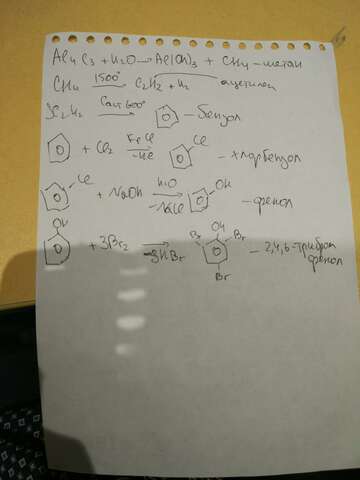 Al4C3 + H2O → Al(OH)3 + CH4 – метан
CH4 1500° → C2H2 + H2 ацетилен
3C2H2 Cакт 600° → – бензол
+ Cl2 → -HCl Cl – хлорбензол
Cl + NaOH H2O → -NaCl OH – фенол
OH + 3Br2 → -3HBr OH Br Br Br – 2,4,6-трибром
фенол